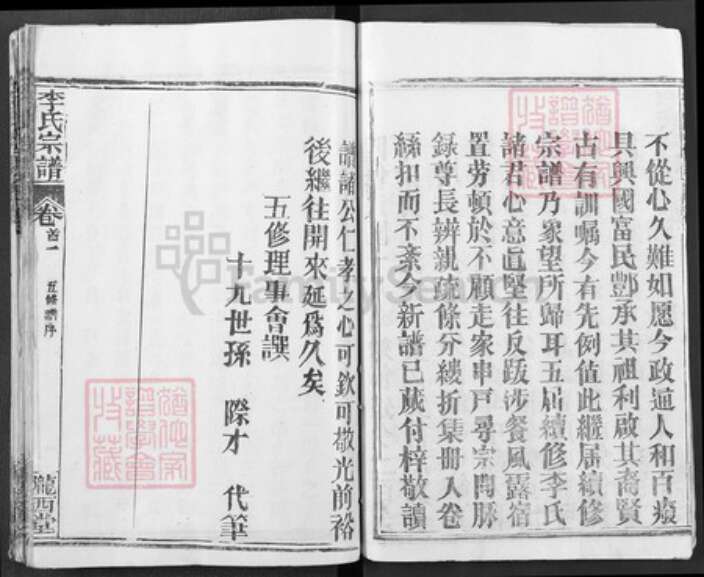 不從心久難如愿今政通人和百廢
具興國富民酆承其祖利啟其裔賢
古有訓嘱今有先例值此繼居續修
宗譜乃眾望所歸耳五届續修李氏
諸君心意眞堅往反跋涉餐風露宿
置劳頓於不顧走家串戸尋宗問脉
錄尊長辨親疏條分縷折集册入卷
絲扣而不紊今新譜已蕆付梓敬讀
譜諸公仁孝之心可欽可敬光前裕
後繼往開來延爲久矣
五修理事會譔
十九世孫 際才 代筆
李氏宗譜 卷首一 五修譜序
隴西堂
FamilySearch